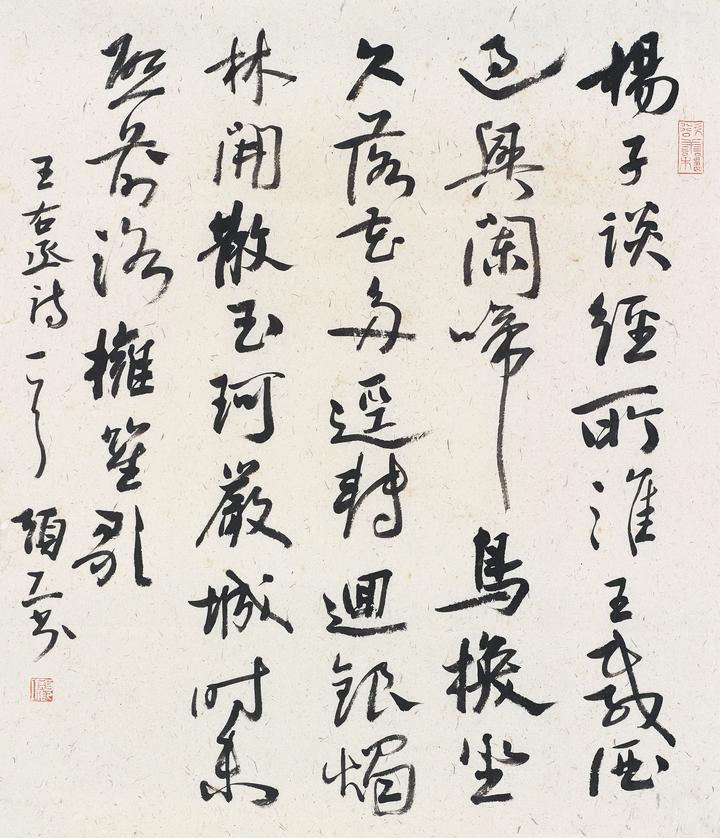 楊子談經所淮王載酒
過興闌啼鳥換坐
久落花多逕轉迴銀燭
林開散玉珂嚴城時未
啟前路擁笙歌
王右丞詩一首 顧工書